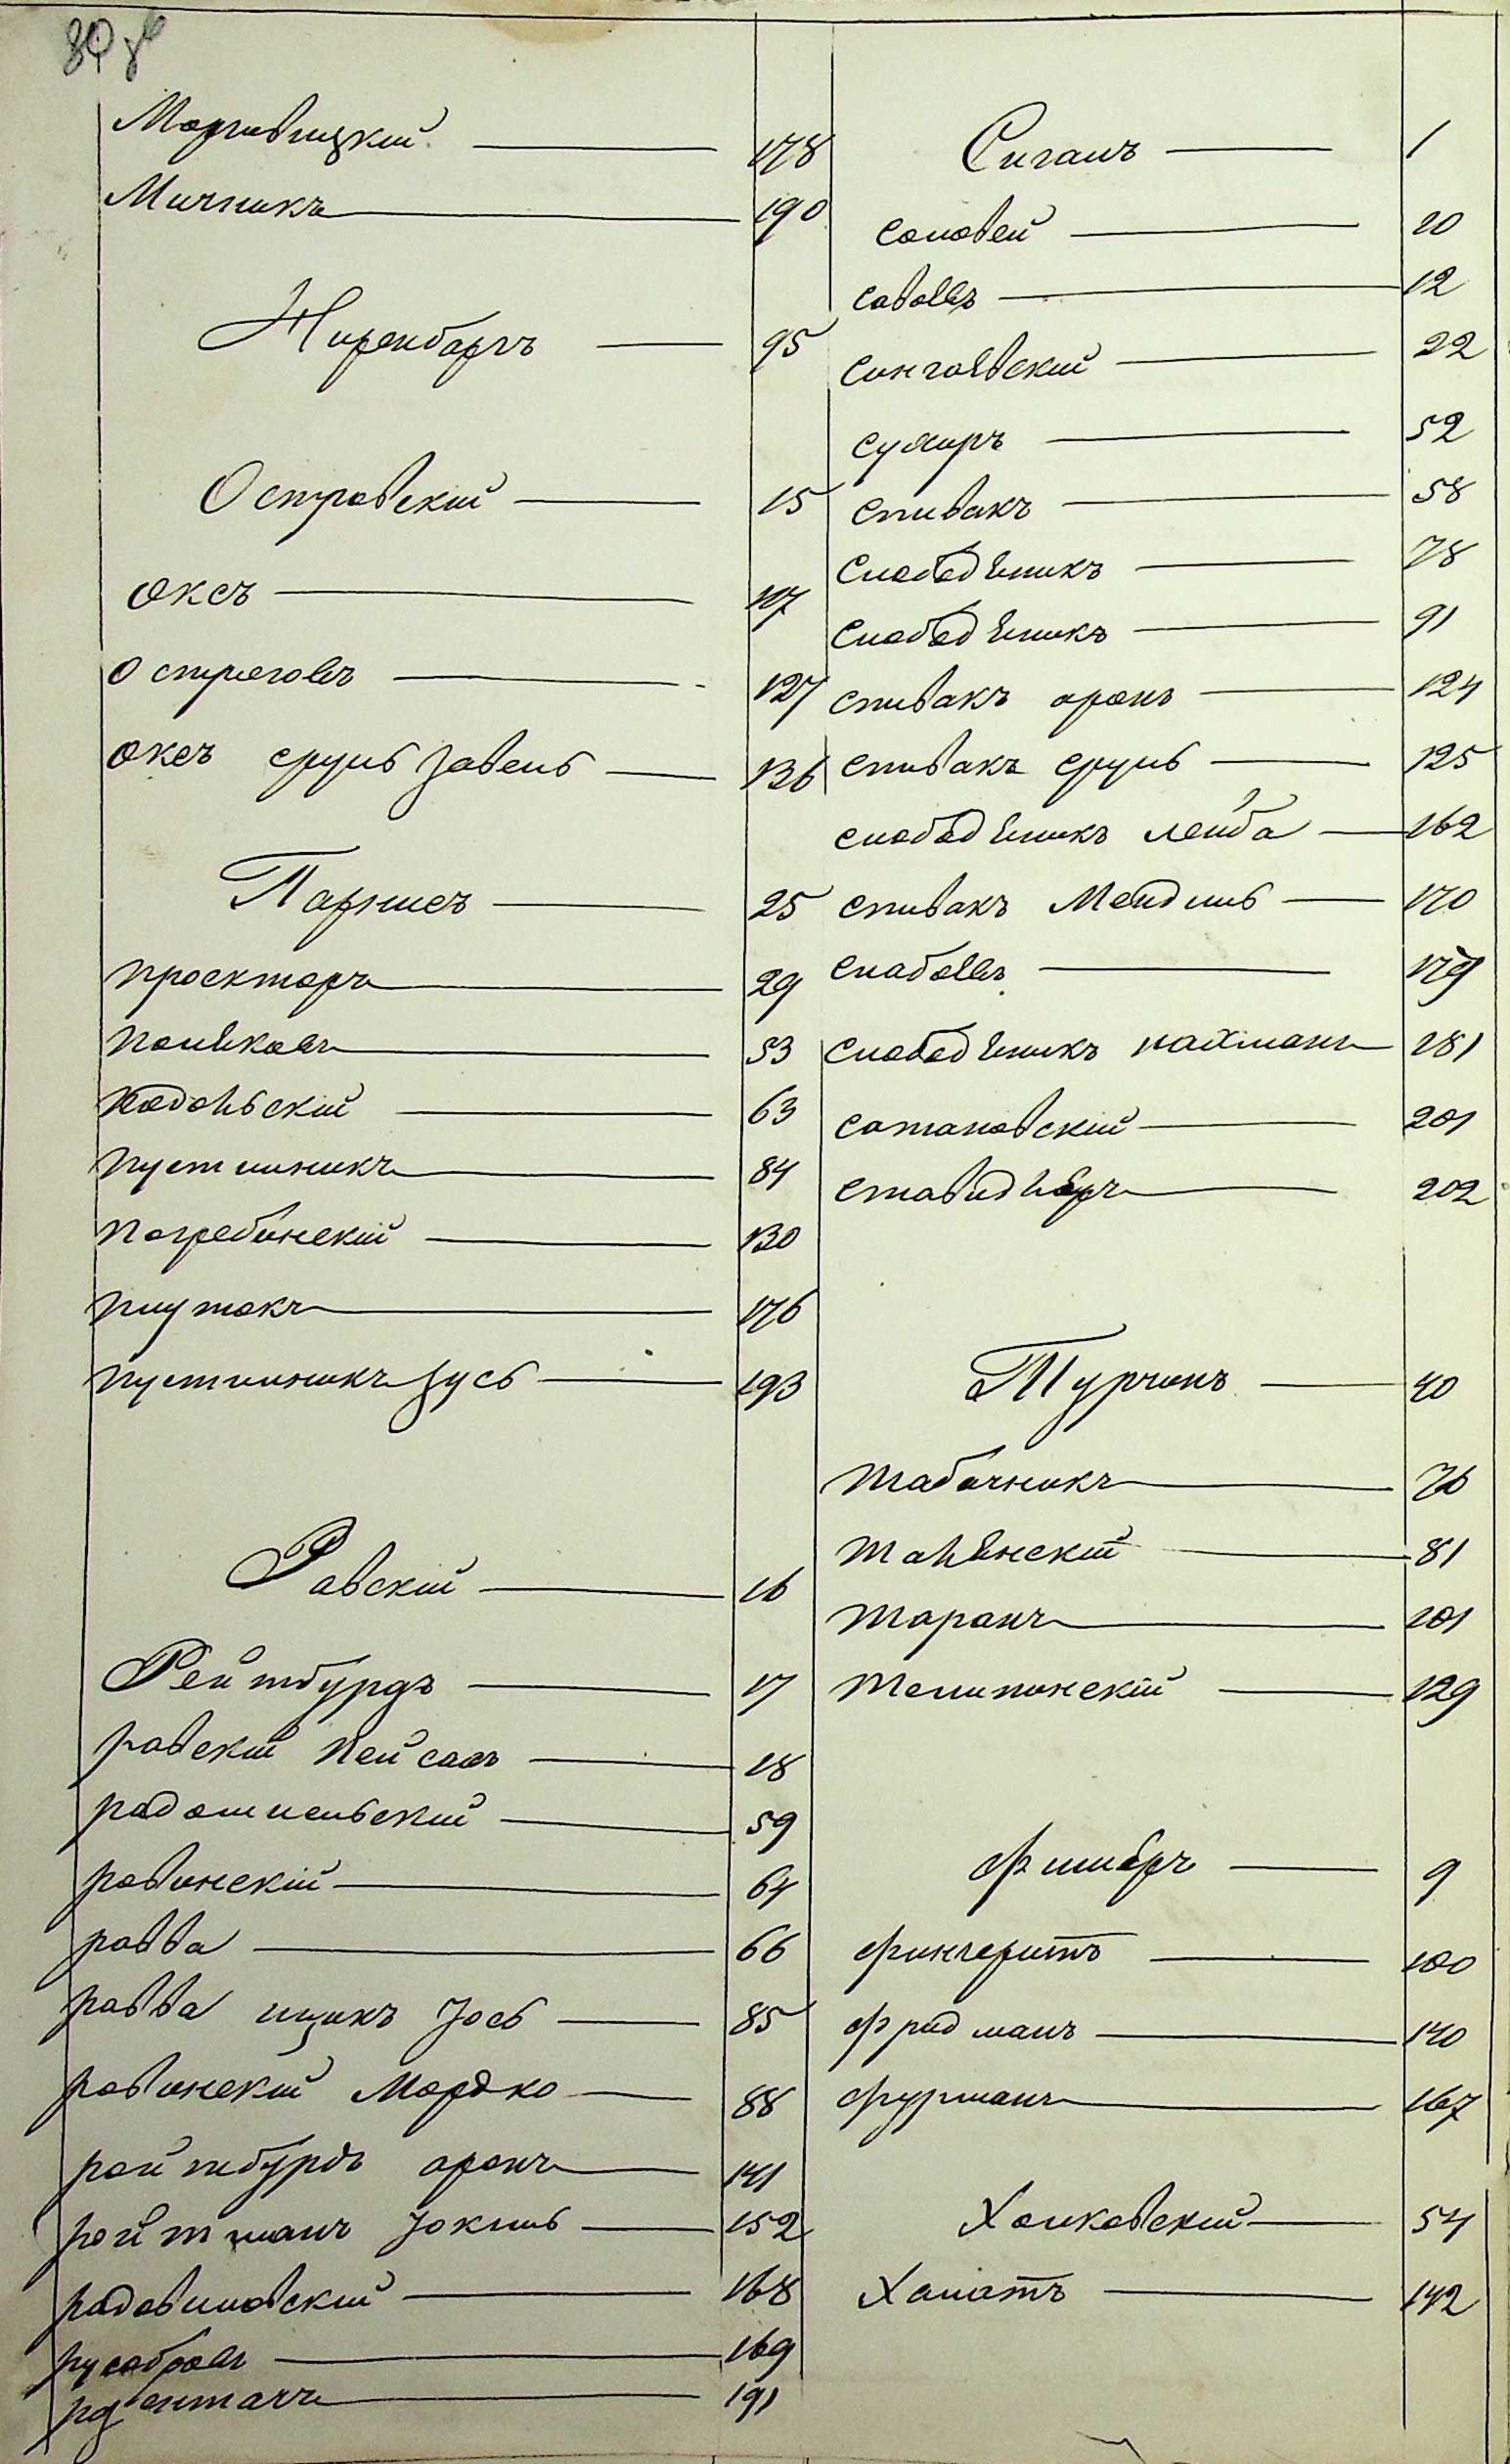 Моргивицкій 178
Мичникъ 190
Ниренбергъ 95
Островскій 15
оксъ 107
остреговъ 127
оксъ сруль завель 136
Парнисъ 25
проекторъ 29
поляковъ 53
подольскій 63
пустильникъ 84
погребинскій 130
плутокъ 176
пустильникъ зусь 193
Равскій 16
Рейтбурдъ 17
равскій пейсахъ 18
радомисльскій 59
ровинскій 64
равва 66
равва ицикъ Іось 85
ровинскій Мордко 88
ройтбурдъ аронъ 141
ройтманъ Іокиль 152
радовиловскій 168
русобровъ 169
191
Сиганъ 1
соловей 10
совобъ 12
сингаевскій 22
сухиръ 52
спивакъ 58
слободяникъ 78
слободяникъ 91
спивакъ аронъ 124
спивакъ сруль 125
слободяникъ лейба 162
спивакъ Мендиль 170
179
слободяникъ нахманъ 181
сотановскій 201
ставидляръ 202
Турчинъ 40
табачникъ 76
талянскій 81
таранъ 101
телипинскій 129
Фишеръ 9
фингеритъ 100
фридманъ 140
фурманъ 167
Холковскій 54
Халатъ 142